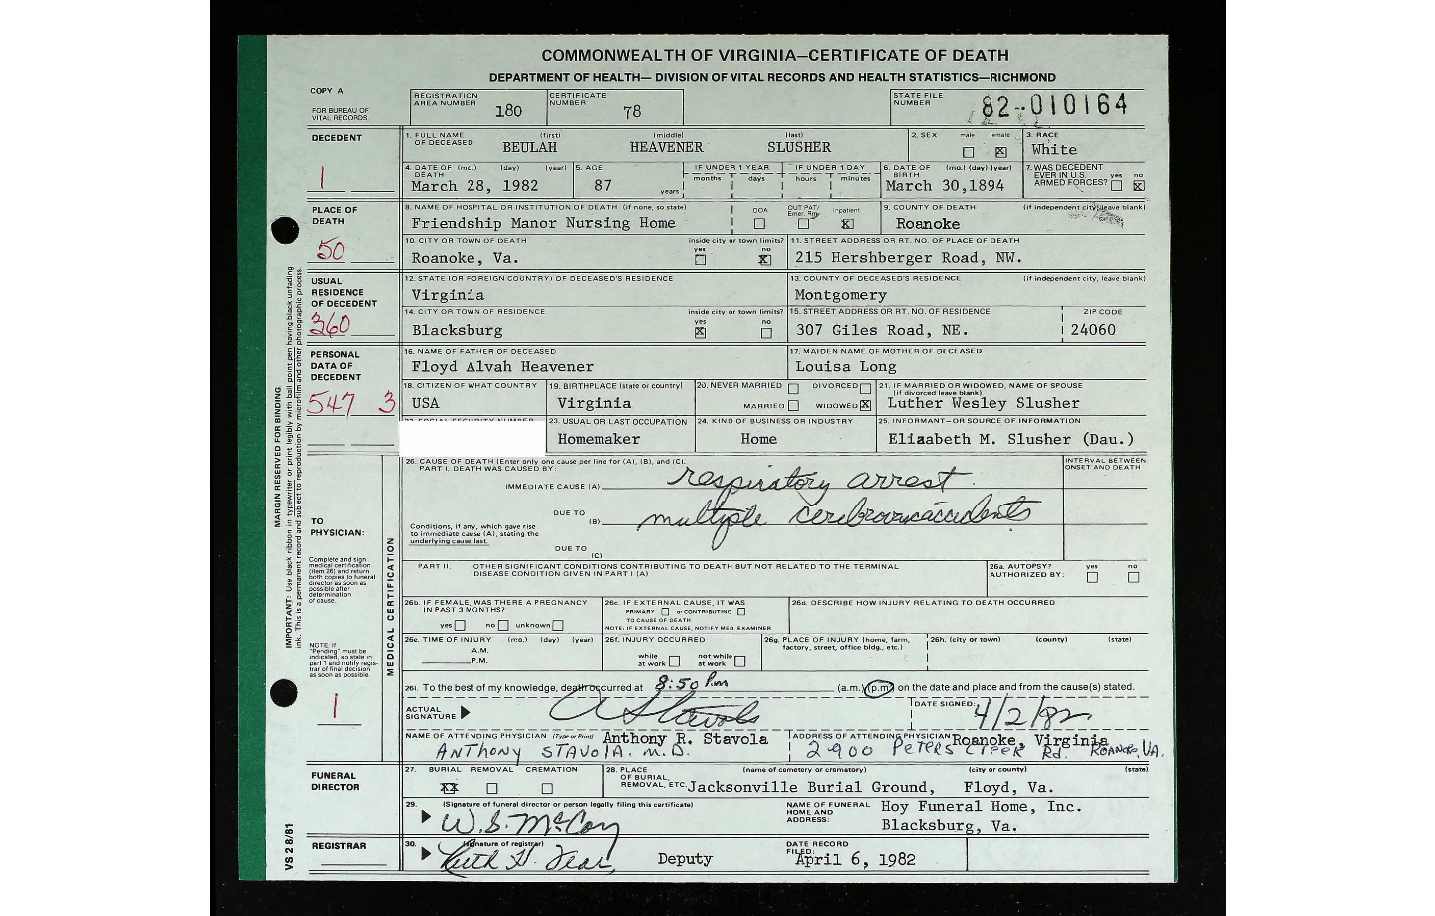 COMMONWEALTH OF VIRGINIA—CERTIFICATE OF DEATH
DEPARTMENT OF HEALTH— DIVISION OF VITAL RECORDS AND HEALTH STATISTICS—RICHMOND
COPY A
FOR BUREAU OF VITAL RECORDS
REGISTRATION AREA NUMBER 180
CERTIFICATE NUMBER 78
STATE FILE NUMBER 82-010164
DECEDENT
1
1. FULL NAME OF DECEASED (first) (middle) (last)
BEULAH HEAVENER SLUSHER
2. SEX male emale X
3. RACE White
4. DATE OF DEATH (mo.) (day) (year) March 28, 1982
5. AGE 87 years
IF UNDER 1 YEAR months days
IF UNDER 1 DAY hours minutes
6. DATE OF BIRTH (mo.) (day) (year) March 30,1894
7. WAS DECEDENT EVER IN U.S. ARMED FORCES? yes no X
PLACE OF DEATH
50
8. NAME OF HOSPITAL OR INSTITUTION OF DEATH (if none, so state) DOA OUT PAT/ Emer. Rm. Inpatient X
Friendship Manor Nursing Home
9. COUNTY OF DEATH (if independent city, leave blank)
Roanoke
10. CITY OR TOWN OF DEATH inside city or town limits? yes no X
Roanoke, Va.
11. STREET ADDRESS OR RT. NO. OF PLACE OF DEATH
215 Hershberger Road, NW.
USUAL RESIDENCE OF DECEDENT
360
12. STATE (OR FOREIGN COUNTRY) OF DECEASED'S RESIDENCE
Virginia
13. COUNTY OF DECEASED'S RESIDENCE (if independent city, leave blank)
Montgomery
14. CITY OR TOWN OF RESIDENCE inside city or town limits? yes X no
Blacksburg
15. STREET ADDRESS OR RT. NO. OF RESIDENCE ZIP CODE
307 Giles Road, NE. 24060
PERSONAL DATA OF DECEDENT
547 3
16. NAME OF FATHER OF DECEASED
Floyd Alvah Heavener
17. MAIDEN NAME OF MOTHER OF DECEASED
Louisa Long
18. CITIZEN OF WHAT COUNTRY USA
19. BIRTHPLACE (state or country) Virginia
20. NEVER MARRIED DIVORCED MARRIED WIDOWED X
21. IF MARRIED OR WIDOWED, NAME OF SPOUSE (if divorced leave blank)
Luther Wesley Slusher
22. SOCIAL SECURITY NUMBER
23. USUAL OR LAST OCCUPATION Homemaker
24. KIND OF BUSINESS OR INDUSTRY Home
25. INFORMANT—OR SOURCE OF INFORMATION
Elizabeth M. Slusher (Dau.)
MARGIN RESERVED FOR BINDING
IMPORTANT: Use black ribbon in typewriter or print legibly with ball point pen having black unfading
ink. This is a permanent record and subject to reproduction by microfilm and other photographic process.
VS 2 8/81
TO PHYSICIAN:
Complete and sign medical certification (item 26) and return both copies to funeral director as soon as possible after determination of cause.
NOTE: If "Pending" must be indicated, so state in part 1 and notify registrar of final decision as soon as possible.
1
MEDICAL CERTIFICATION
26. CAUSE OF DEATH (Enter only one cause per line for (A), (B), and (C).
PART I. DEATH WAS CAUSED BY:
INTERVAL BETWEEN ONSET AND DEATH
IMMEDIATE CAUSE (A) respiratory arrest
DUE TO (B) multiple cerebrovascaccidents
Conditions, if any, which gave rise to immediate cause (A), stating the underlying cause last.
DUE TO (C)
PART II. OTHER SIGNIFICANT CONDITIONS CONTRIBUTING TO DEATH BUT NOT RELATED TO THE TERMINAL DISEASE CONDITION GIVEN IN PART I (A)
26a. AUTOPSY? AUTHORIZED BY: yes no
26b. IF FEMALE, WAS THERE A PREGNANCY IN PAST 3 MONTHS? yes no unknown
26c. IF EXTERNAL CAUSE, IT WAS PRIMARY or CONTRIBUTING TO CAUSE OF DEATH
NOTE: IF EXTERNAL CAUSE, NOTIFY MED. EXAMINER
26d. DESCRIBE HOW INJURY RELATING TO DEATH OCCURRED
26e. TIME OF INJURY (mo.) (day) (year) A.M. P.M.
26f. INJURY OCCURRED while at work not while at work
26g. PLACE OF INJURY (home, farm, factory, street, office bldg., etc.)
26h. (city or town) (county) (state)
26i. To the best of my knowledge, death occurred at 8:50 P.m (a.m.) (p.m.) on the date and place and from the cause(s) stated.
ACTUAL SIGNATURE A Stavola
DATE SIGNED: 4/2/82
NAME OF ATTENDING PHYSICIAN (Type or Print) Anthony R. Stavola
ANTHONY STAVOLA. M.D.
ADDRESS OF ATTENDING PHYSICIAN Roanoke, Virginia
2900 PETERS CREEK Rd. ROANOKE, VA.
FUNERAL DIRECTOR
27. BURIAL REMOVAL CREMATION
XX
28. PLACE OF BURIAL, REMOVAL, ETC. (name of cemetery or crematory) (city or county) (state)
Jacksonville Burial Ground, Floyd, Va.
29. (Signature of funeral director or person legally filing this certificate)
W. S. McCoy
NAME OF FUNERAL HOME AND ADDRESS: Hoy Funeral Home, Inc.
Blacksburg, Va.
REGISTRAR
30. (signature of registrar)
Deputy
DATE RECORD FILED: April 6, 1982